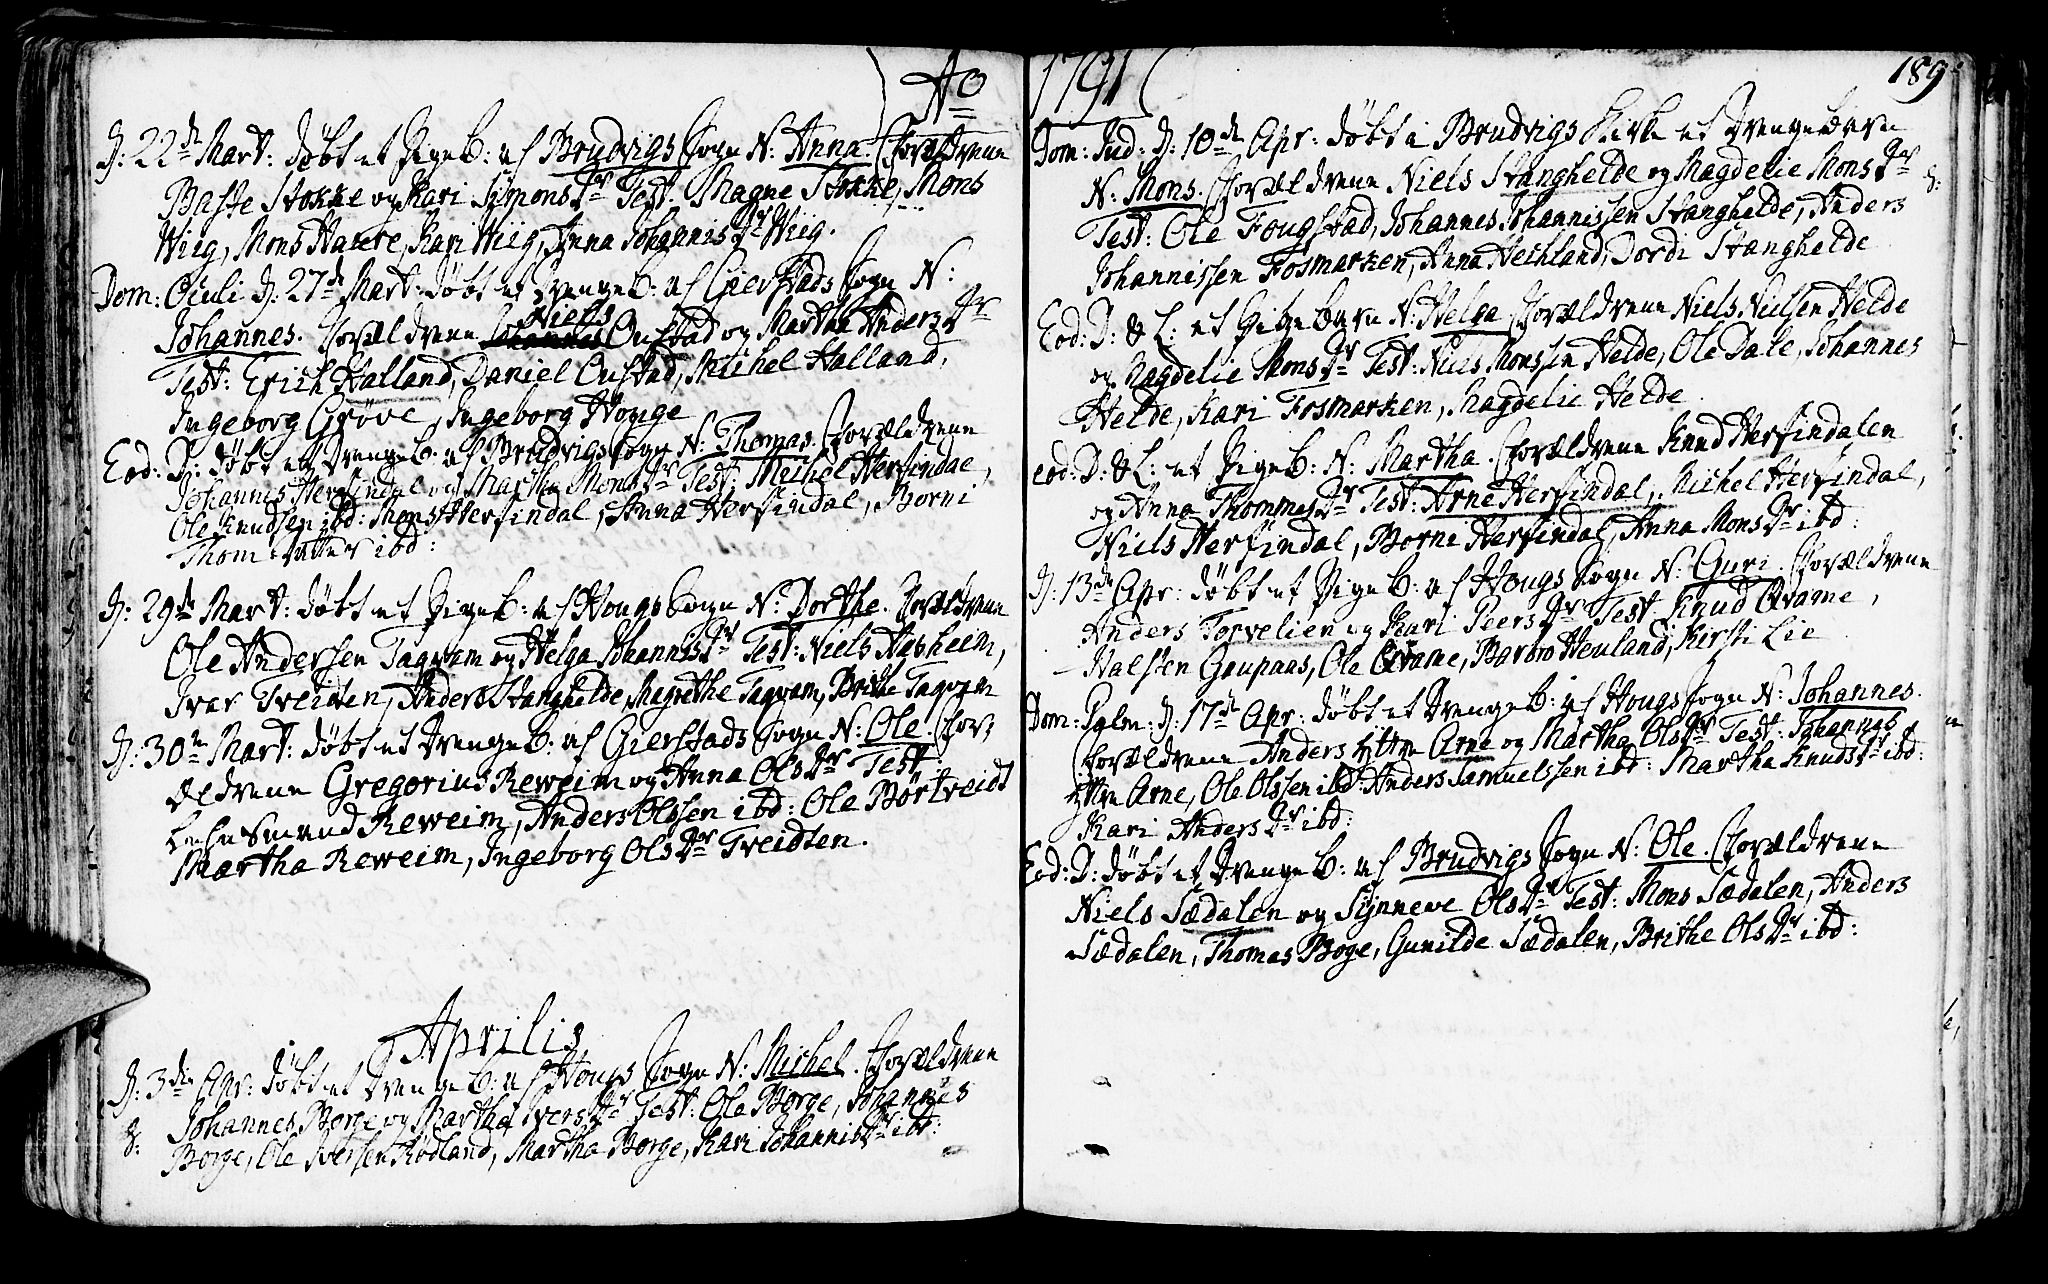 Ao
D: 22de Mart: døbt et PigeB: af Brudvigs Sogn N: Anna. Forældrene
Baste Stokke og Kari SimonsDr Test. Magne Stokke, Mons
Wiig, Mons Hatere, Kari Wiig, Anna JohannisDr Wiig.
Dom: Oculi D: 27de Mart: døbt et DrengeB: af Gierstads Sogn N:
Johannes. Forældrene Niels Onstad og Martha AndersDr
Test: Erich Halland, Daniel Onstad, Michel Halland,
Ingeborg Grøve, Ingeborg Houge
Eod: D: døbt et DrengeB: af Brudvigs Sogn N: Thomas. Forældrene
Johannes Herfindal og Martha MonsDr Test: Michel Herfindal,
Ole Knudsen ibd: Mons Herfindal, Anna Herfindal, Borni
Thom: datter ibd:
D: 29de Mart: døbt et PigeB: af Hougs Sogn N: Dorthe. Forældrene
Ole Anderssen Taqvam og Helga JohannisDr Test: Niels Hasheim,
Iver Tveidten, Anders Stanghelde, Magrethe Taqvam, Brithe Taqvam
D: 30te Mart: døbt et DrengeB: af Gierstads Sogn N: Ole. For-
ældrene Gregorius Reweim og Anna OlsDr Test:
Lehnsmand Reweim, Anders Olssen ibd: Ole Børtveidt
Martha Reweim, Ingeborg OlsDr Tveidten.
Aprilis
D: 3die Apr: døbt et DrengeB: af Hougs Sogn N: Michel. Forældrene
Johannes Borge og Martha IversDr Test: Ole Borge, Johannes
Borge, Ole Iverssen Rødland, Martha Borge, Kari JohannisDr ibd:
1791
189
Dom: Jud: D: 10de Apr: døbt i Brudvigs Kirke et Drengebarn
N: Mons. Forældrene Niels Stanghelde og Magdelie MonsDr
Test: Ole Fougstad, Johannes Johannissen Stanghelde, Anders
Johannissen Fosmarken, Anna Hechland, Dordi Stanghelde
Eod: D: & L: et Pigebarn N: Helga. Forældrene Niels Nielsen Helde
og Magdelie MonsDr Test: Niels Monssen Helde, Ole Dale, Johannes
Helde, Kari Fosmarken, Magdelie Helde.
eod: D: & L: et PigeB: N: Martha. Forældrene Knud Herfindalen
og Anna ThommesDr Test: Arne Herfindal, Michel Herfindal,
Niels Herfindal, Borni Herfindal, Anna MonsDr ibd:
D: 13de Apr: døbt et PigeB: af Hougs Sogn N: Guri. Forældrene
Anders Torvelien og Kari PeersDr Test Knud Qvame,
Halsten Gaupaas, Ole Qvame, Barbro Heuland, Kirsti Lie
Dom: Palm: D: 17de Apr: døbt et DrengeB: af Hougs Sogn N: Johannes.
Forældrene Anders yttre Arne og Martha OlsDr Test: Johannes
yttre Arne, Ole Olssen ibd: Anders Samuelssen ibd: Martha KnudsDr ibd:
Kari AndersDr ibd:
Eod: D: døbt et DrengeB: af Brudvigs Sogn N: Ole. Forældrene
Niels Sædalen og Synneve OlsDr Test: Mons Sædalen, Anders
Sædalen, Thomas Boge, Gunilde Sædalen, Brithe OlsDr ibd: